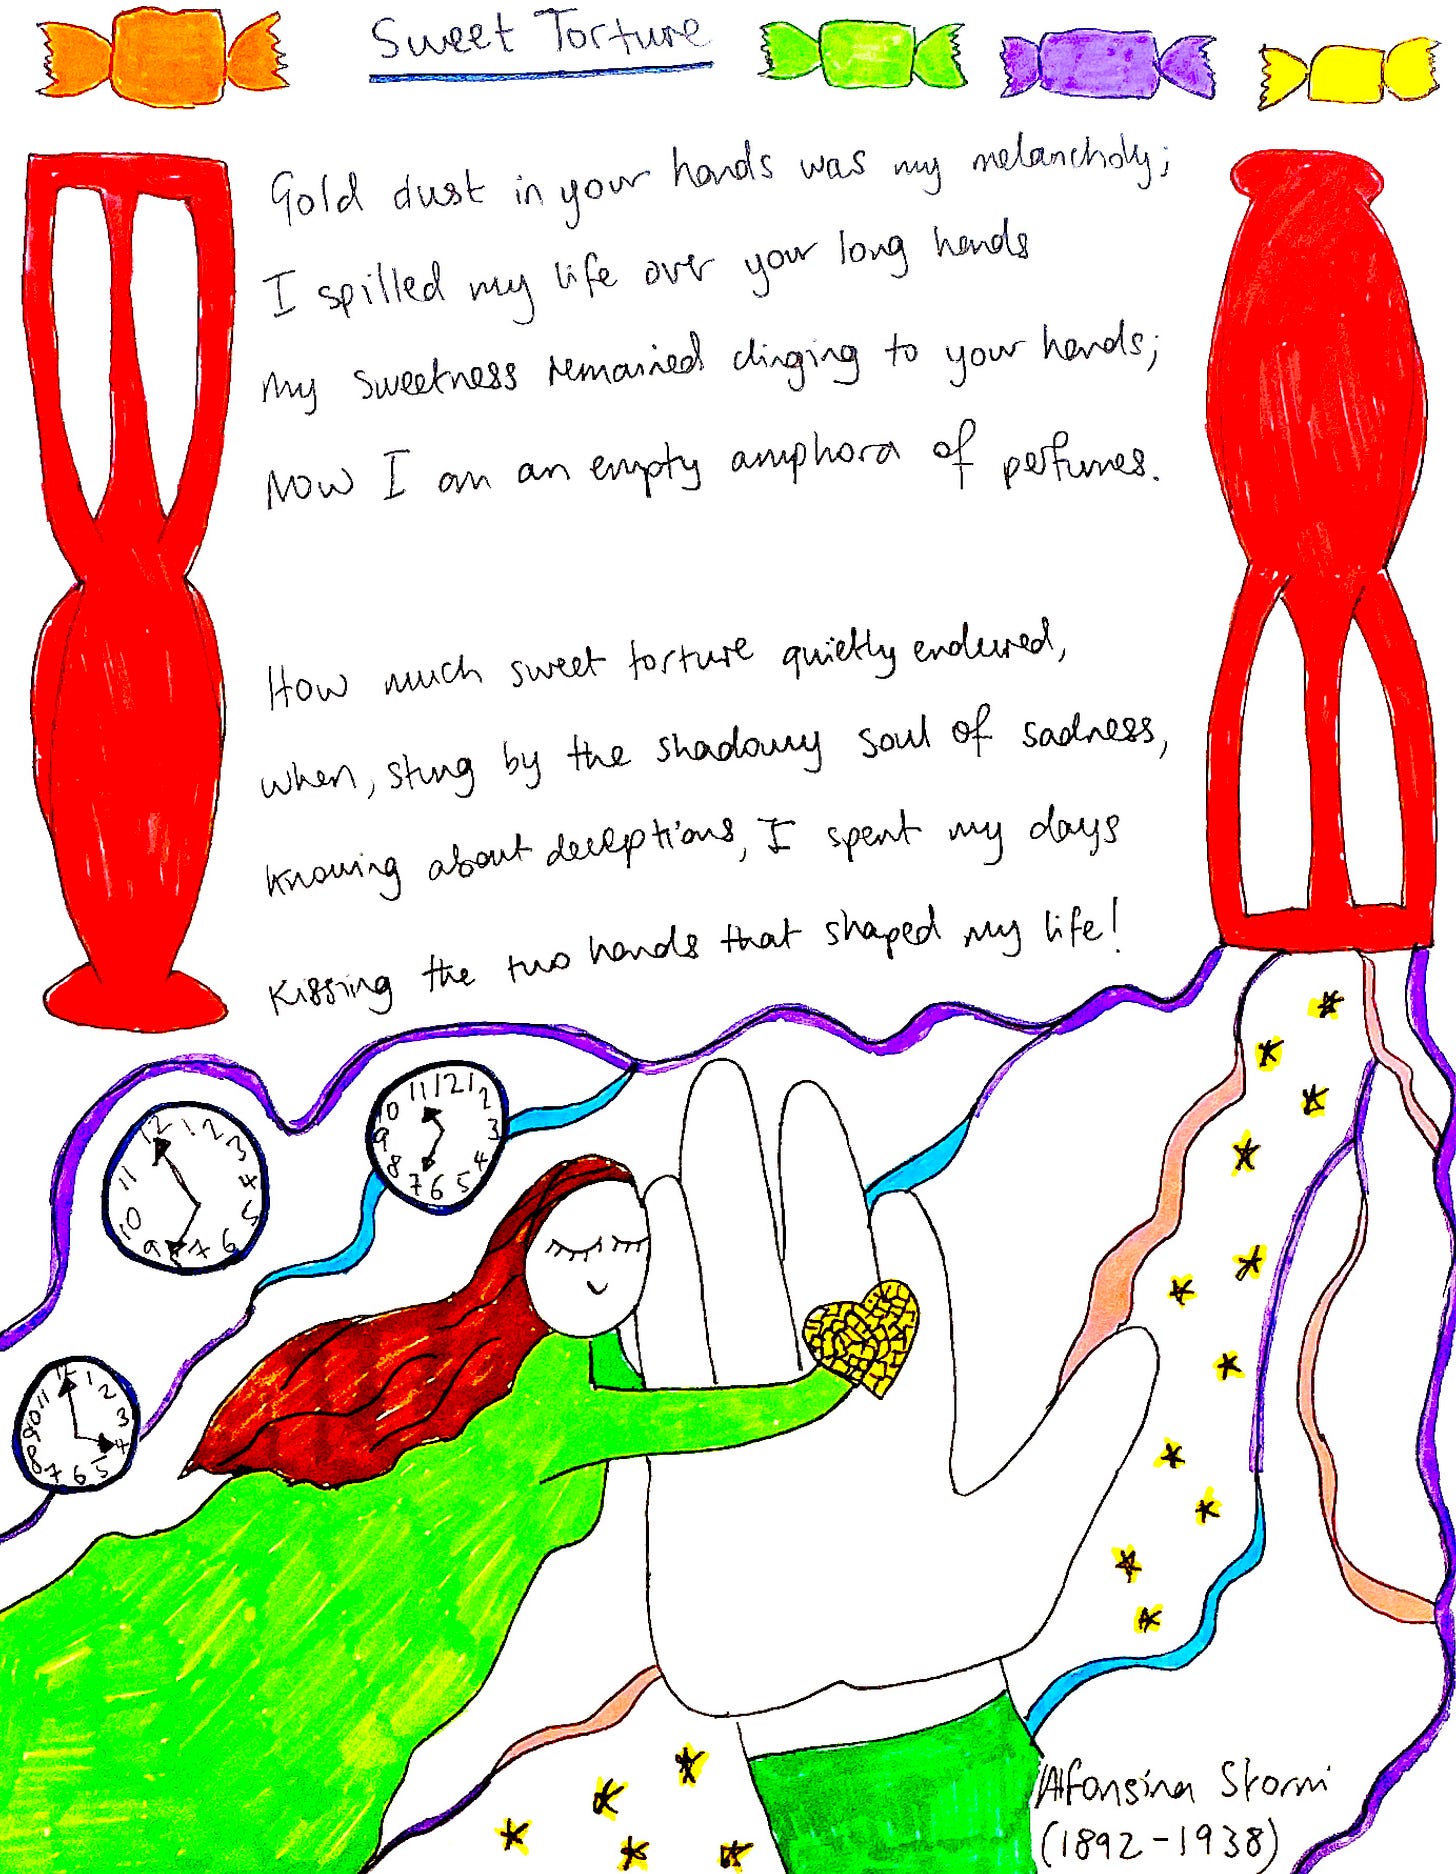 Sweet Torture
Gold dust in your hands was my melancholy;
I spilled my life over your long hands
My sweetness remained clinging to your hands;
Now I am an empty amphora of perfumes.
How much sweet torture quietly endured,
when, stung by the shadowy soul of sadness,
Knowing about deceptions, I spent my days
Kissing the two hands that shaped my life!
12 1 2 3 4 5 6 7 9 10 11
11 12 1 2 3 4 5 6 7 8 9 10
12 1 2 3 4 5 6 7 8 9 10 11
Alfonsina Storni
(1892-1938)